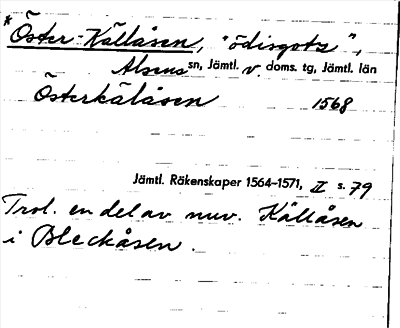 * Öster-Källåsen, "ödisgotz",
Alsens sn, Jämtl. v. doms. tg, Jämtl. län
Österkälåsen 1568
Jämtl. Räkenskaper 1564–1571, II s. 79
Trol. en del av nuv. Källåsen
i Bleckåsen.